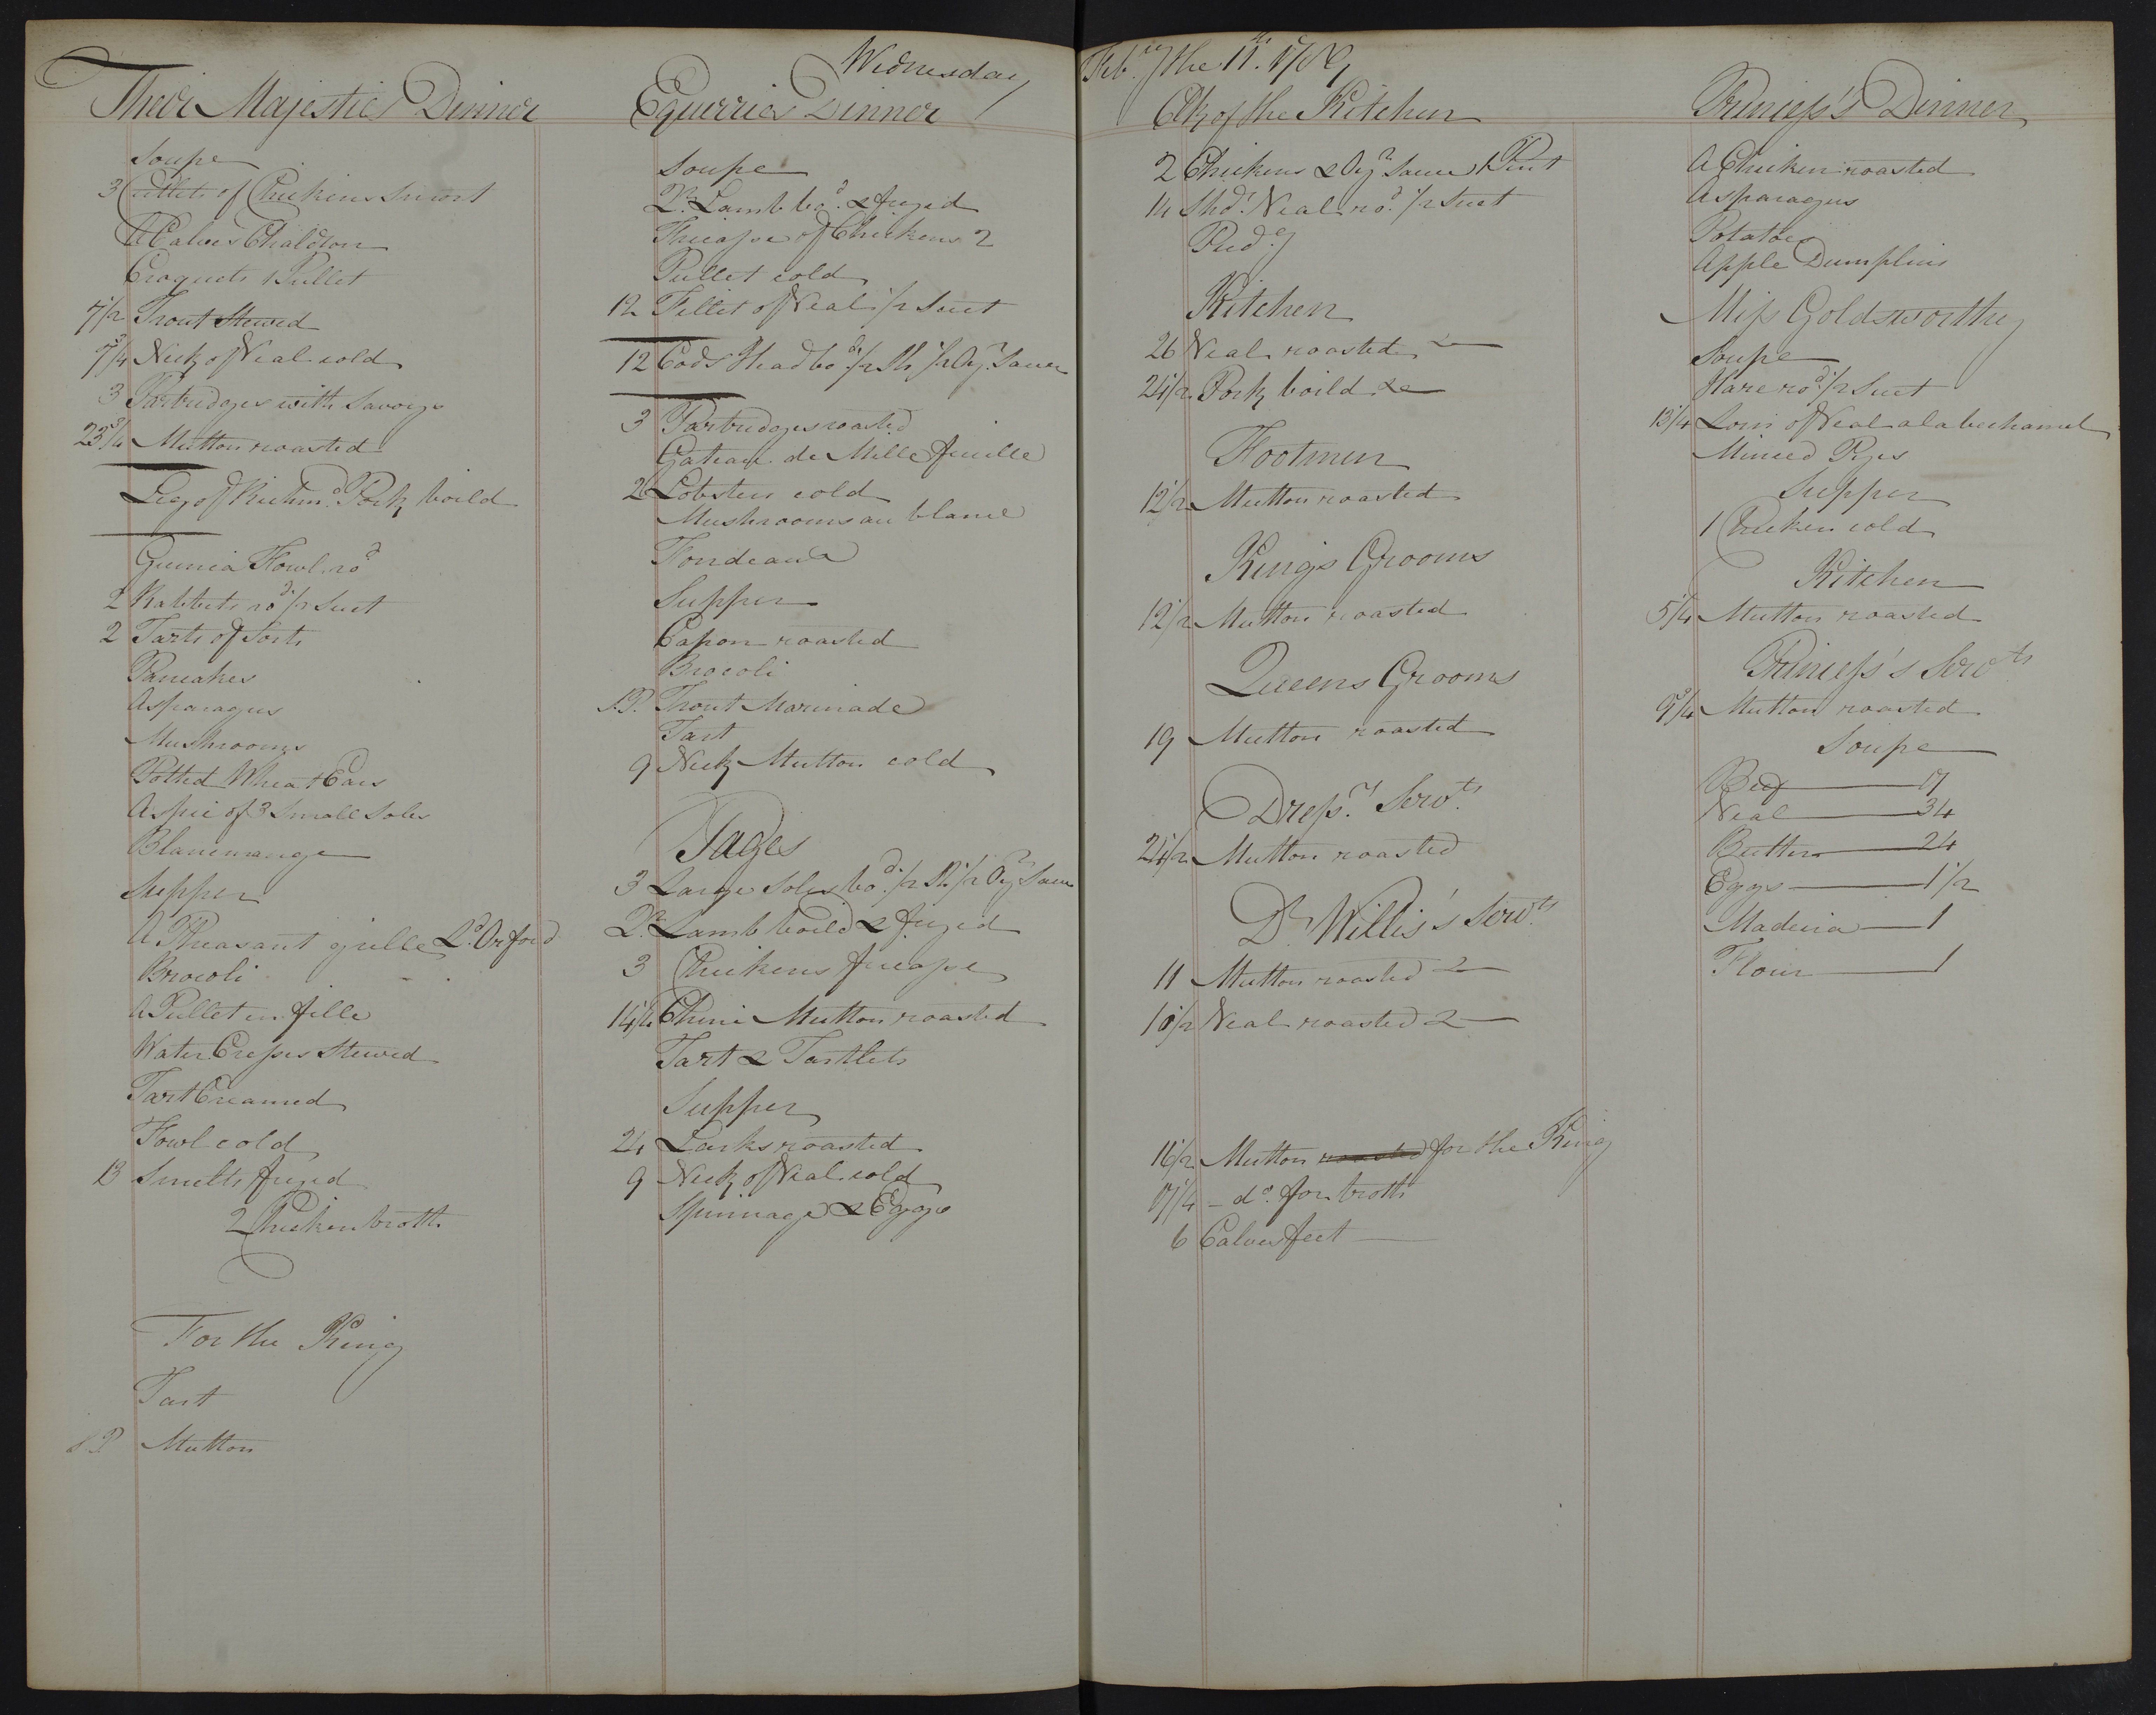 Wednesday Feb.ry the 11.th 1789
Their Majesties Dinner
Soupe
3 Cutlets of Chickens
A Calves Chaldron
Croquets 1 Pullet
7 1/2 Trout Stewed
7 3/4 Neck of Veal cold
3 Partridges with Savoys
23 3/4 Mutton roasted
Leg of Richm.d Pork boild
Guinea Fowl ro.d
2 Rabbets ro.d 1/2 Suet
2 Tarts of Sorts
Pancakes
Asparagus
Mushrooms
Potted Wheat Ears
Aspic of 3 Small Soles
Blancmange
Supper
A Pheasant grille L.d Orford
Brocoli
A Pullet en fille
Water Cresses Stewed
Tart Creamed
Fowl cold
13 Smelts fryed
2 Chicken broth
For the King
Tart
S.P. Mutton
Equerries Dinner
Soupe
Q.r Lamb bo.d & fryed
Fricasse of Chickens 2
Pullet cold
12 Fillet of Veal 1/2 Suet
12 Cods Head bo.d 1/2 Sh 1/2 Oy.r Sauce
3 Partridges roasted
Gateau de Mille feuille
2 Lobsters cold
Mushrooms au blanc
Fondeaux
Supper
Capon roasted
Brocoli
S.P. Trout Marinade
Tart
9 Neck Mutton cold
Pages
3 Large Soles bo.d 1/2 Sh. 1/2 Oy.r Sauce
Q.r Lamb boild & fryed
3 Chickens fricasse
14 1/4 Chine Mutton roasted
Tart & Tartlets
Supper
24 Larks roasted
9 Neck of Veal cold
Spinnage & Eggs
Clk of the Kitchen
2 Chickens & Oy.r Sauce 1 Pint
14 Sho.d Veal ro.d 1/2 Suet
Pud.g
Kitchen
26 Veal roasted 2
24 1/2 Pork boild 2
Footmen
12 1/2 Mutton roasted
Kings Grooms
12 1/2 Mutton roasted
Queens Grooms
19 Mutton roasted
Dress.rs Serv.ts
24 1/2 Mutton roasted
D.r Willis's Serv.ts
11 Mutton roasted 2
10 1/2 Veal roasted 2
16 1/2 Mutton roasted for the King
17 1/4 - d.o for broth
6 Calves feet
Princess's Dinner
A Chicken roasted
Asparagus
Potatoes
Apple Dumplins
Miss Goldsworthy
Soupe
Hare ro.d 1/2 Suet
13 1/4 Loin of Veal a la bechamel
Minced Pyes
Supper
1 Chicken cold
Kitchen
5 1/4 Mutton roasted
Princess's Serv.ts
9 3/4 Mutton roasted
Soupe
Beef 17
Veal 34
Butter 24
Eggs 1 1/2
Madeira 1
Flour 1